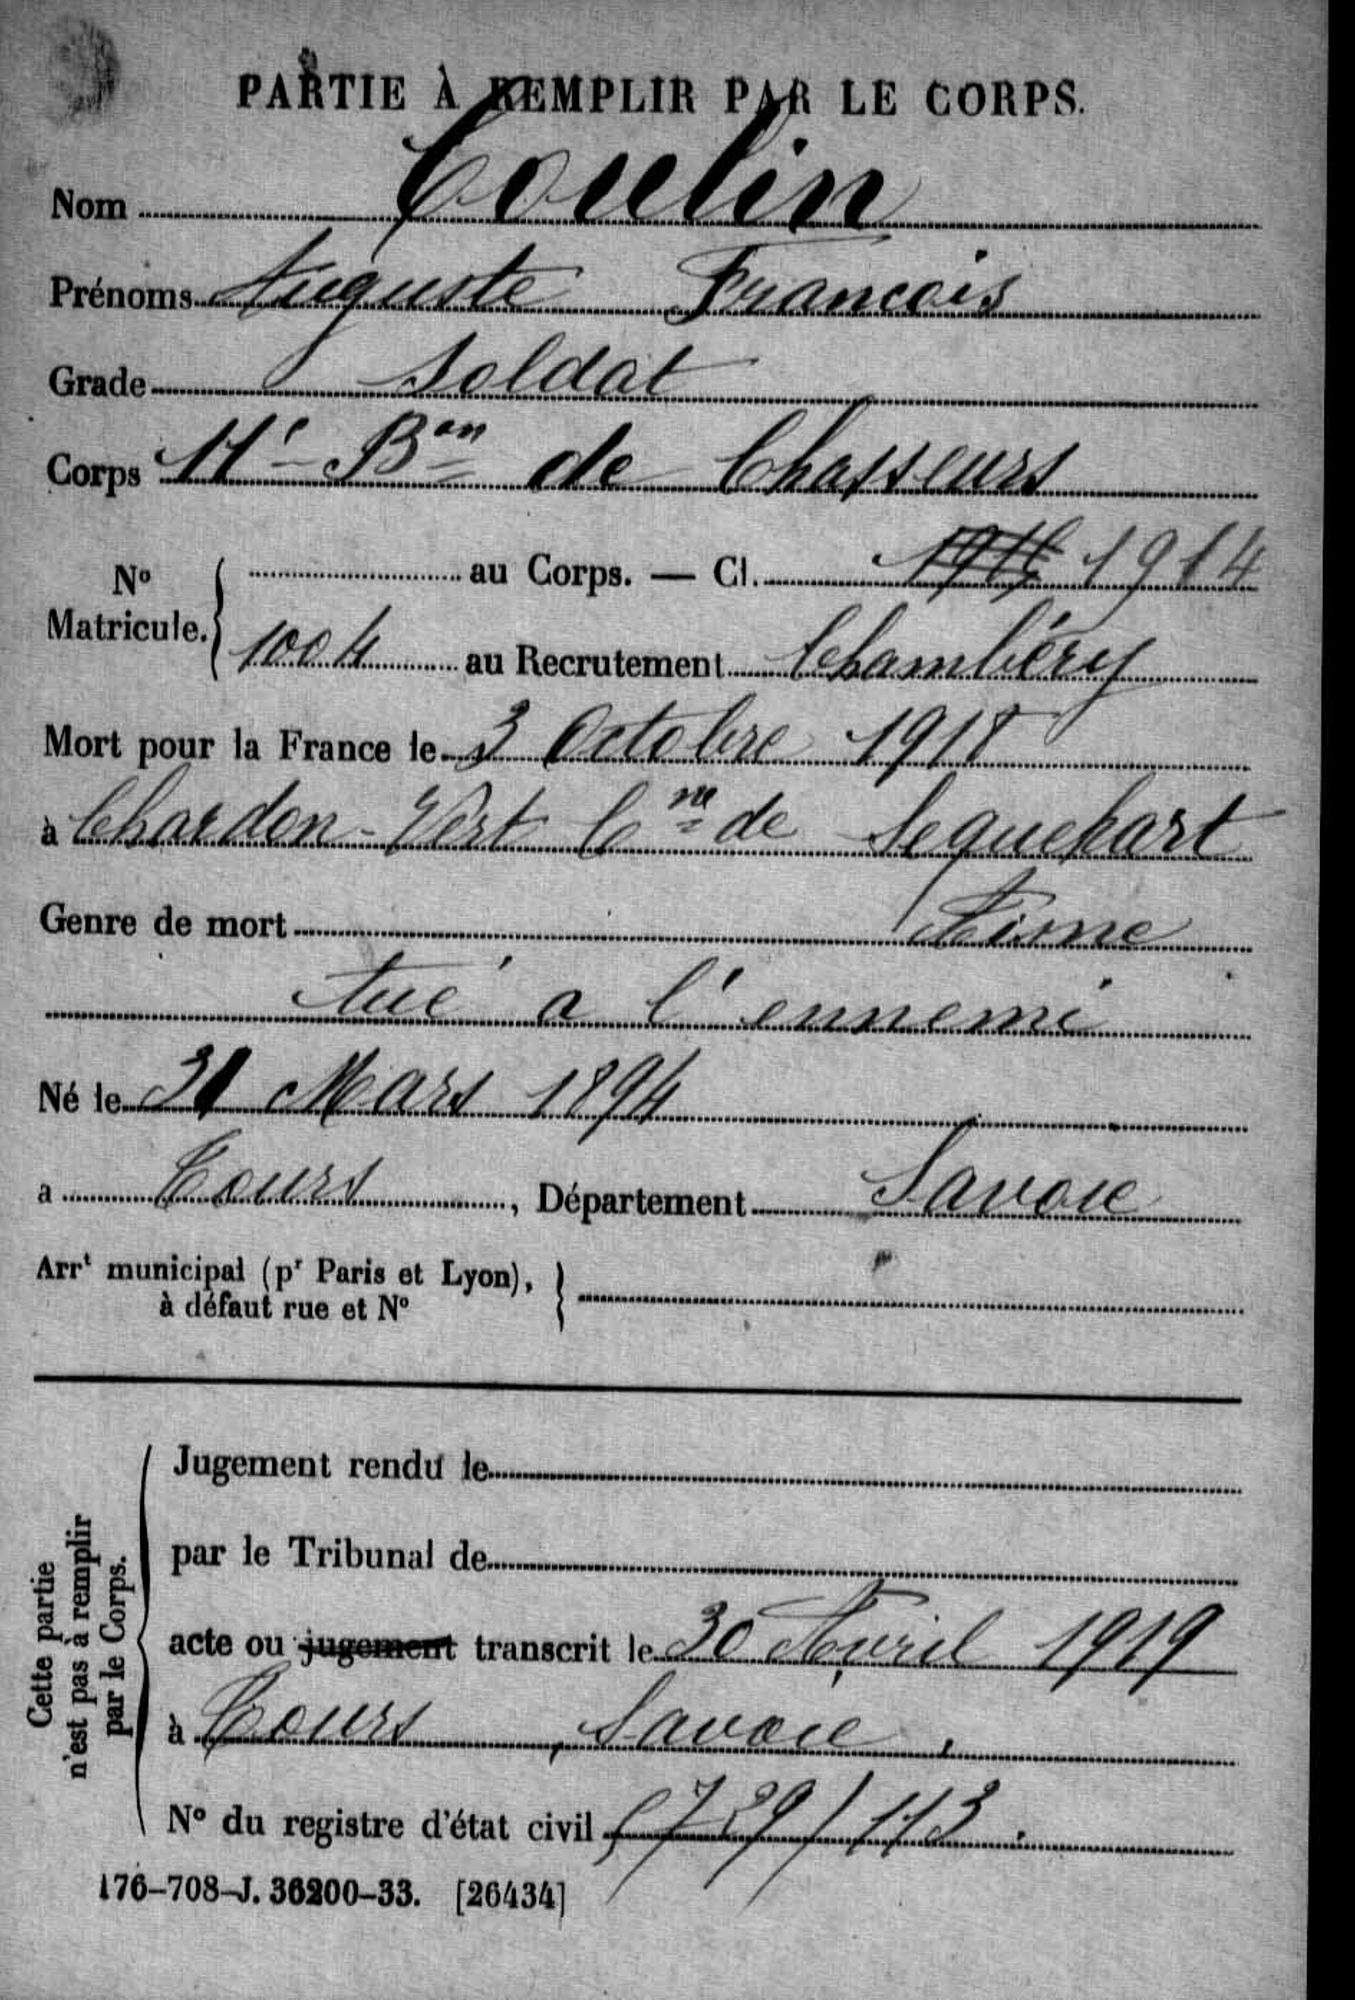 PARTIE À REMPLIR PAR LE CORPS.
Nom Coulin
Prénoms Auguste François
Grade Soldat
Corps 11e Bon de Chasseurs
No Matricule. au Corps. — Cl. 1914
1004 au Recrutement Chambéry
Mort pour la France le 3 Octobre 1918
à Chardon-Vert Cne de Sequehart
Genre de mort Aisne
tué a l'ennemi
Né le 31 Mars 1894
a Tours, Département Savoie
Arrt municipal (pr Paris et Lyon),
à défaut rue et No
Cette partie n'est pas à remplir par le Corps.
Jugement rendu le
par le Tribunal de
acte ou jugement transcrit le 30 Avril 1919
à Tours, Savoie.
No du registre d'état civil 5729/113.
176-708-J. 36200-33. [26434]